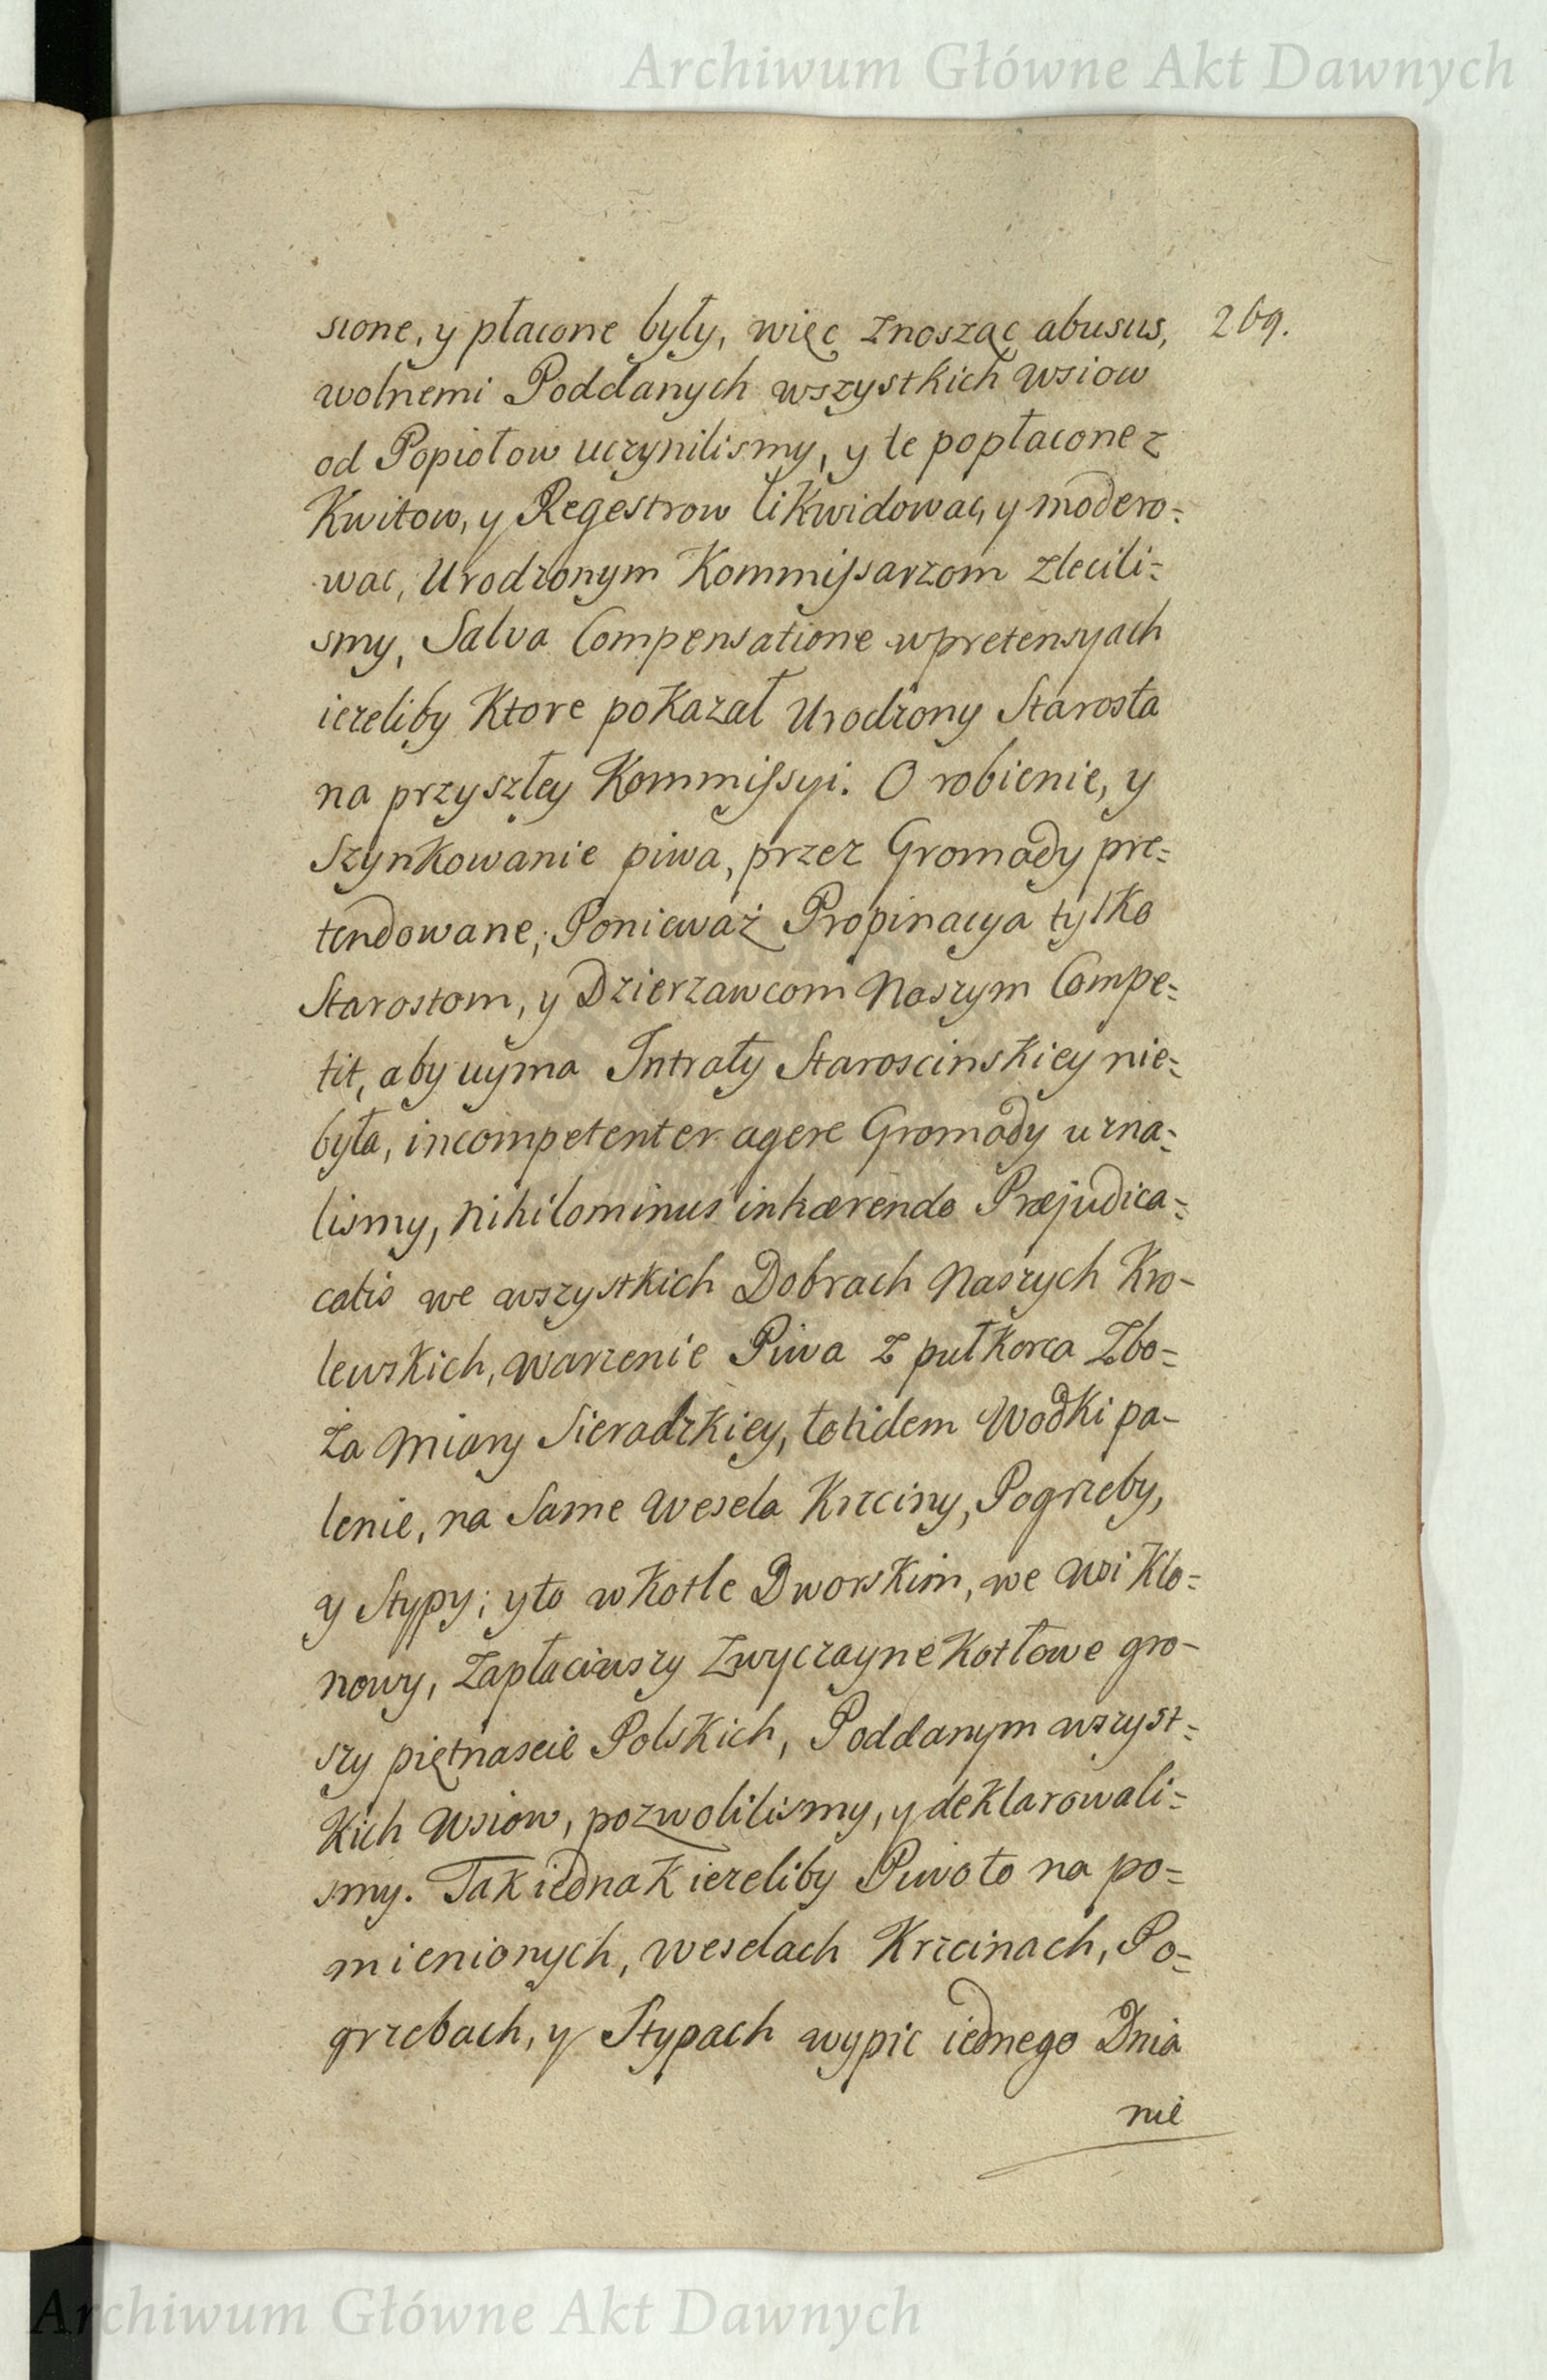 Archiwum Główne Akt Dawnych
sione, y płacone były, więc znosząc abusus, 269.
wolnemi Poddanych wszystkich wsiow
od Popiołow uczynilismy, y te popłacone z
Kwitow, y Regestrow likwidowac, y modero=
wac, Urodzonym Kommissarzom zlecili=
smy, Salva Compensatione w pretensyach
iezeliby Ktore pokazał Urodzony Starosta
na przyszłey Kommissyi. O robienie, y
Szynkowanie piwa, przez Gromady pre=
tendowane, Ponieważ Propinacya tylko
Starostom, y Dzierzawcom Naszym Compe=
tit, aby uyma Intraty Staroscinskiey nie=
była, incompetenter agere Gromady uzna=
lismy, nihilominus inhærendo Præjudica=
catis we wszystkich Dobrach Naszych Kro-
lewskich, warzenie Piwa z puł korca Zbo=
ża Miary Sieradzkiey, totidem Wodki pa-
lenie, na Same Wesela Krzciny, Pogrzeby,
y Stypy; y to w Kotle Dworskim, we Wsi Klo=
nowy, Zapłaciwszy Zwyczayne Kotłowe gro-
szy piętnascie Polskich, Poddanym wszyst=
kich Wsiow, pozwolilismy, y deklarowali=
smy. Tak iednak iezeliby Piwo to na po=
mienionych, weselach Krzcinach, Po=
grzebach, y Stypach wypic iednego Dnia
nie
Archiwum Główne Akt Dawnych